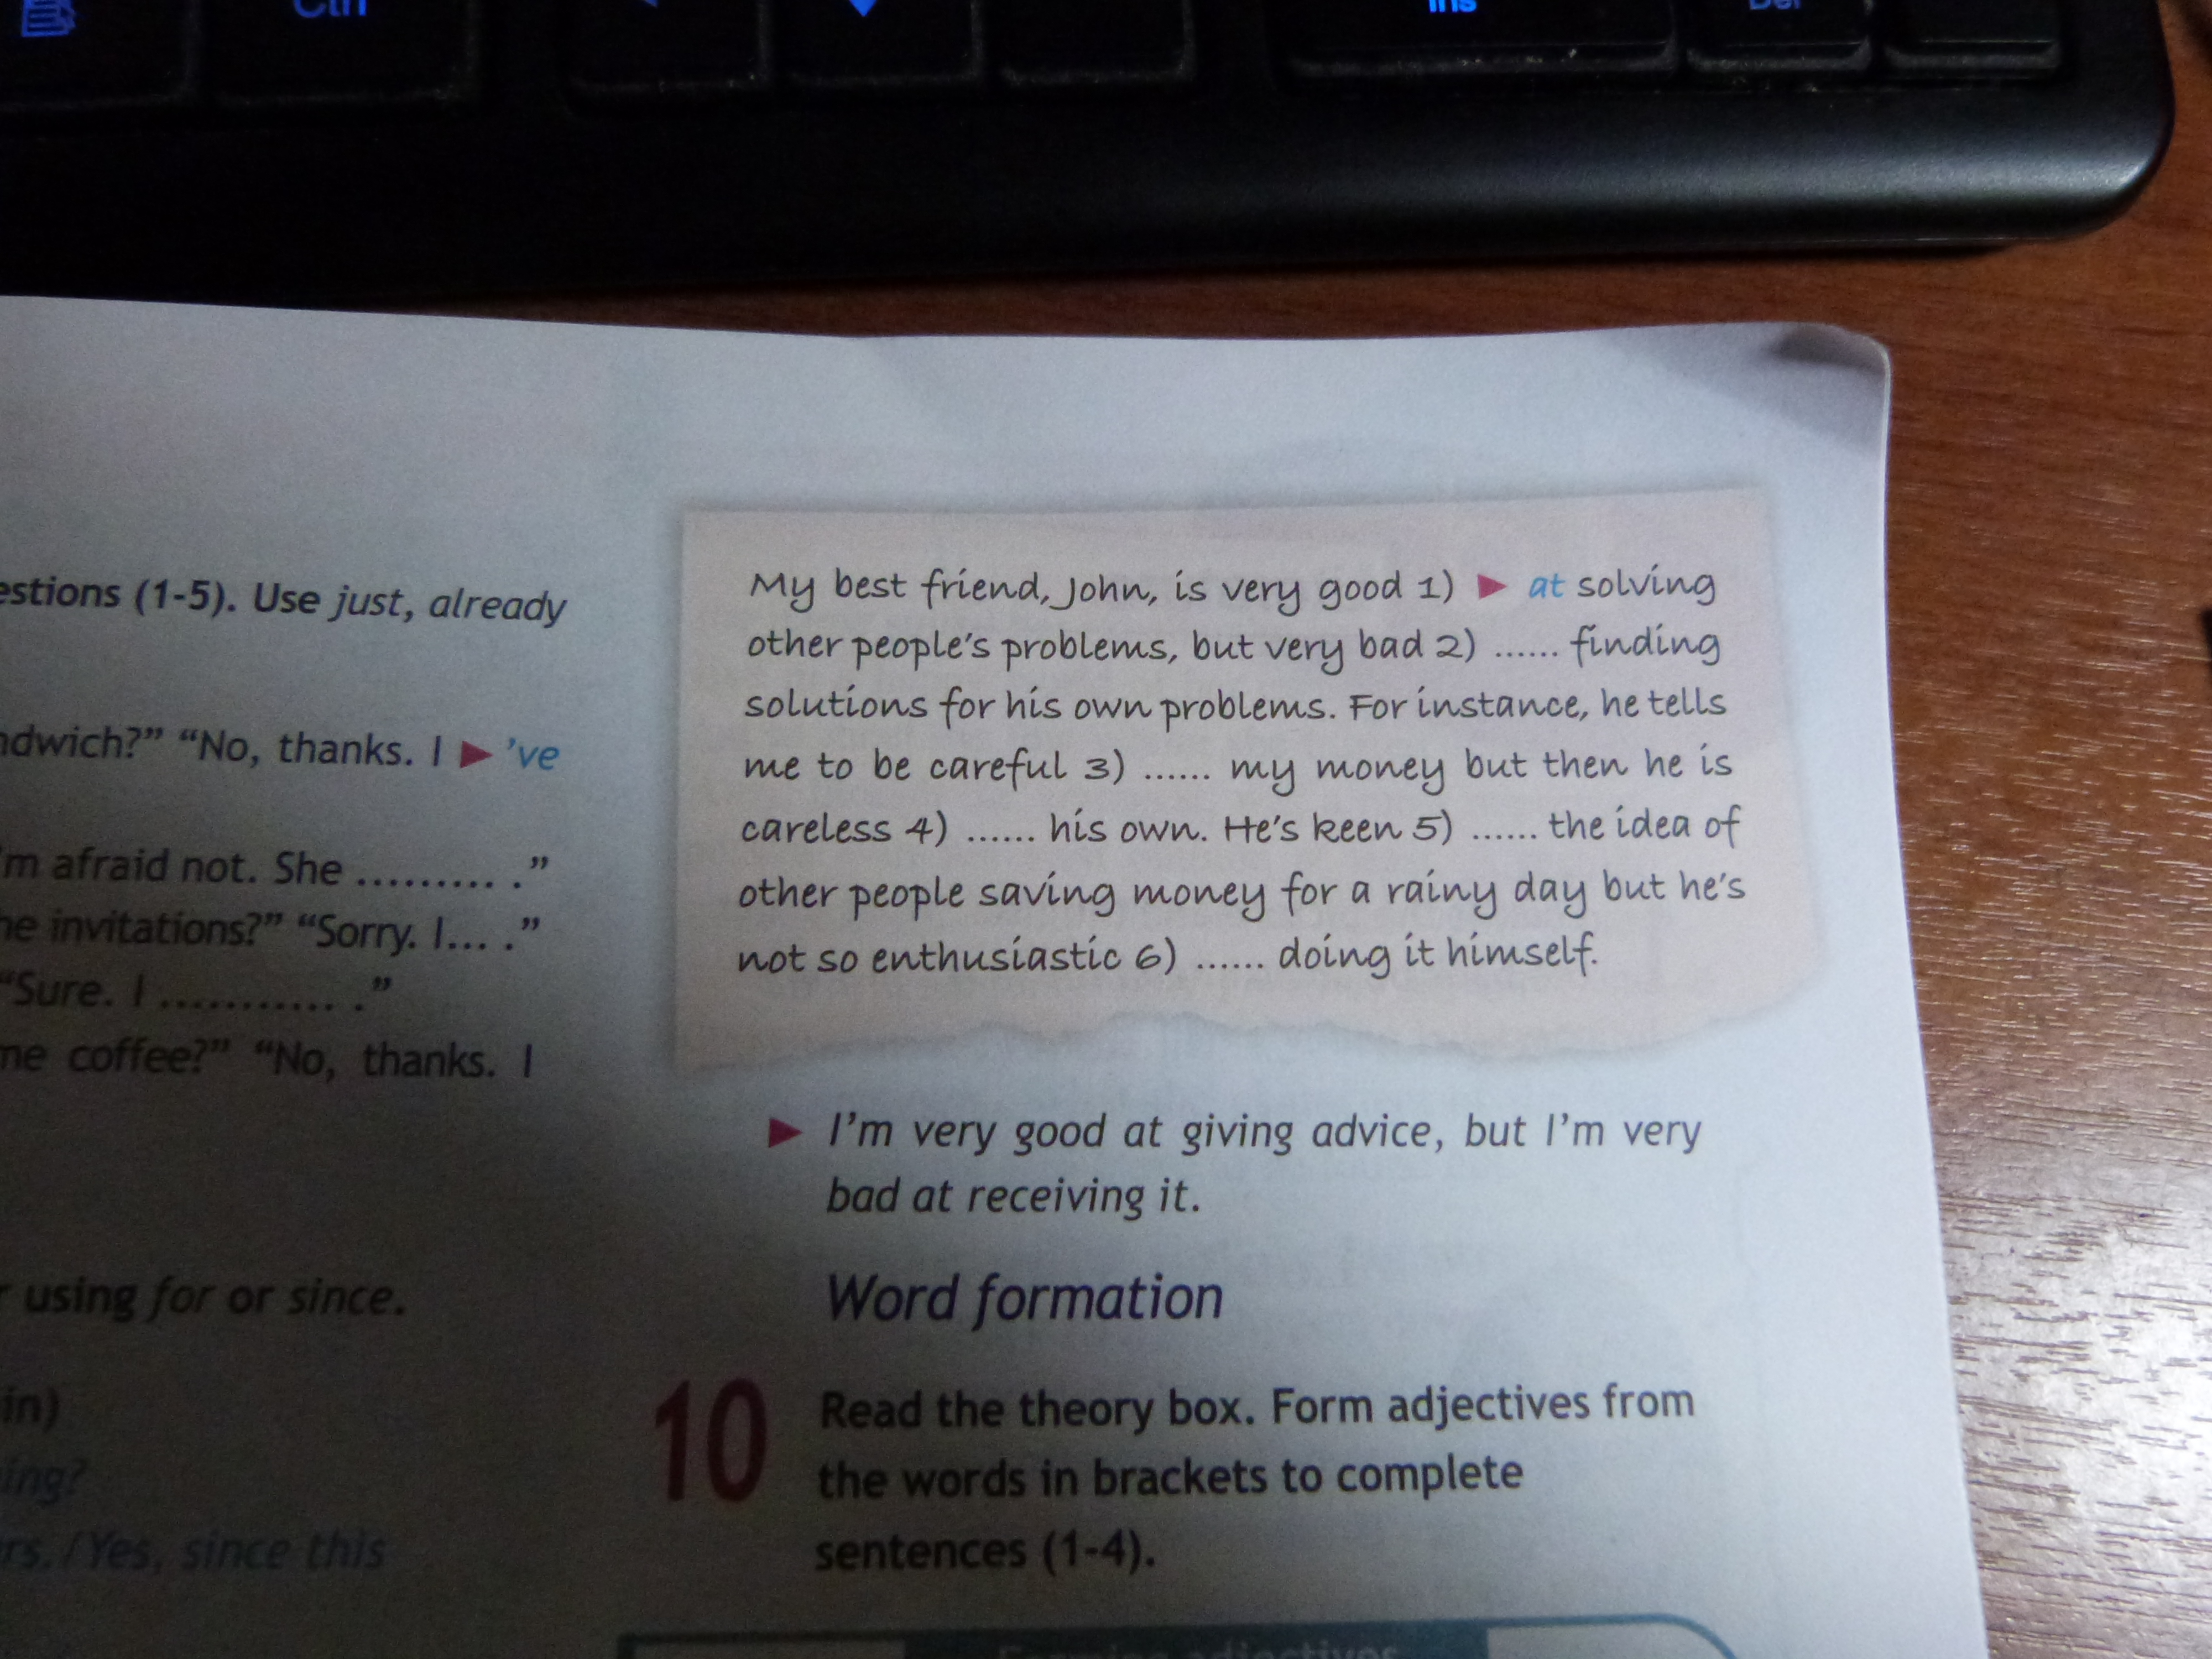 Ctrl
Ins
Del
estions (1-5). Use just, already
ndwich?” “No, thanks. I ► ’ve
’m afraid not. She .......... .”
he invitations?” “Sorry. I... .”
“Sure. I ............. .”
me coffee?” “No, thanks. I
r using for or since.
in)
ing?
rs. / Yes, since this
My best friend, John, is very good 1) ► at solving
other people’s problems, but very bad 2) ...... finding
solutions for his own problems. For instance, he tells
me to be careful 3) ...... my money but then he is
careless 4) ...... his own. He’s keen 5) ...... the idea of
other people saving money for a rainy day but he’s
not so enthusiastic 6) ...... doing it himself.
► I’m very good at giving advice, but I’m very
bad at receiving it.
Word formation
10 Read the theory box. Form adjectives from
the words in brackets to complete
sentences (1-4).
Forming adjectives